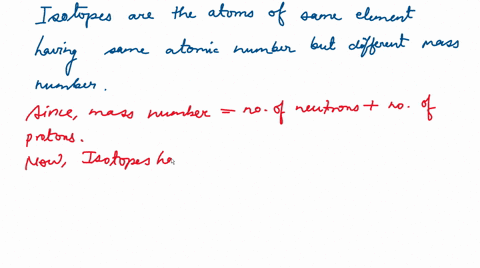 Isotopes are the atoms of same element
having same atomic number but different mass
number.
Since, mass number = no. of neutrons + no. of
protons.
Now, Isotopes ha